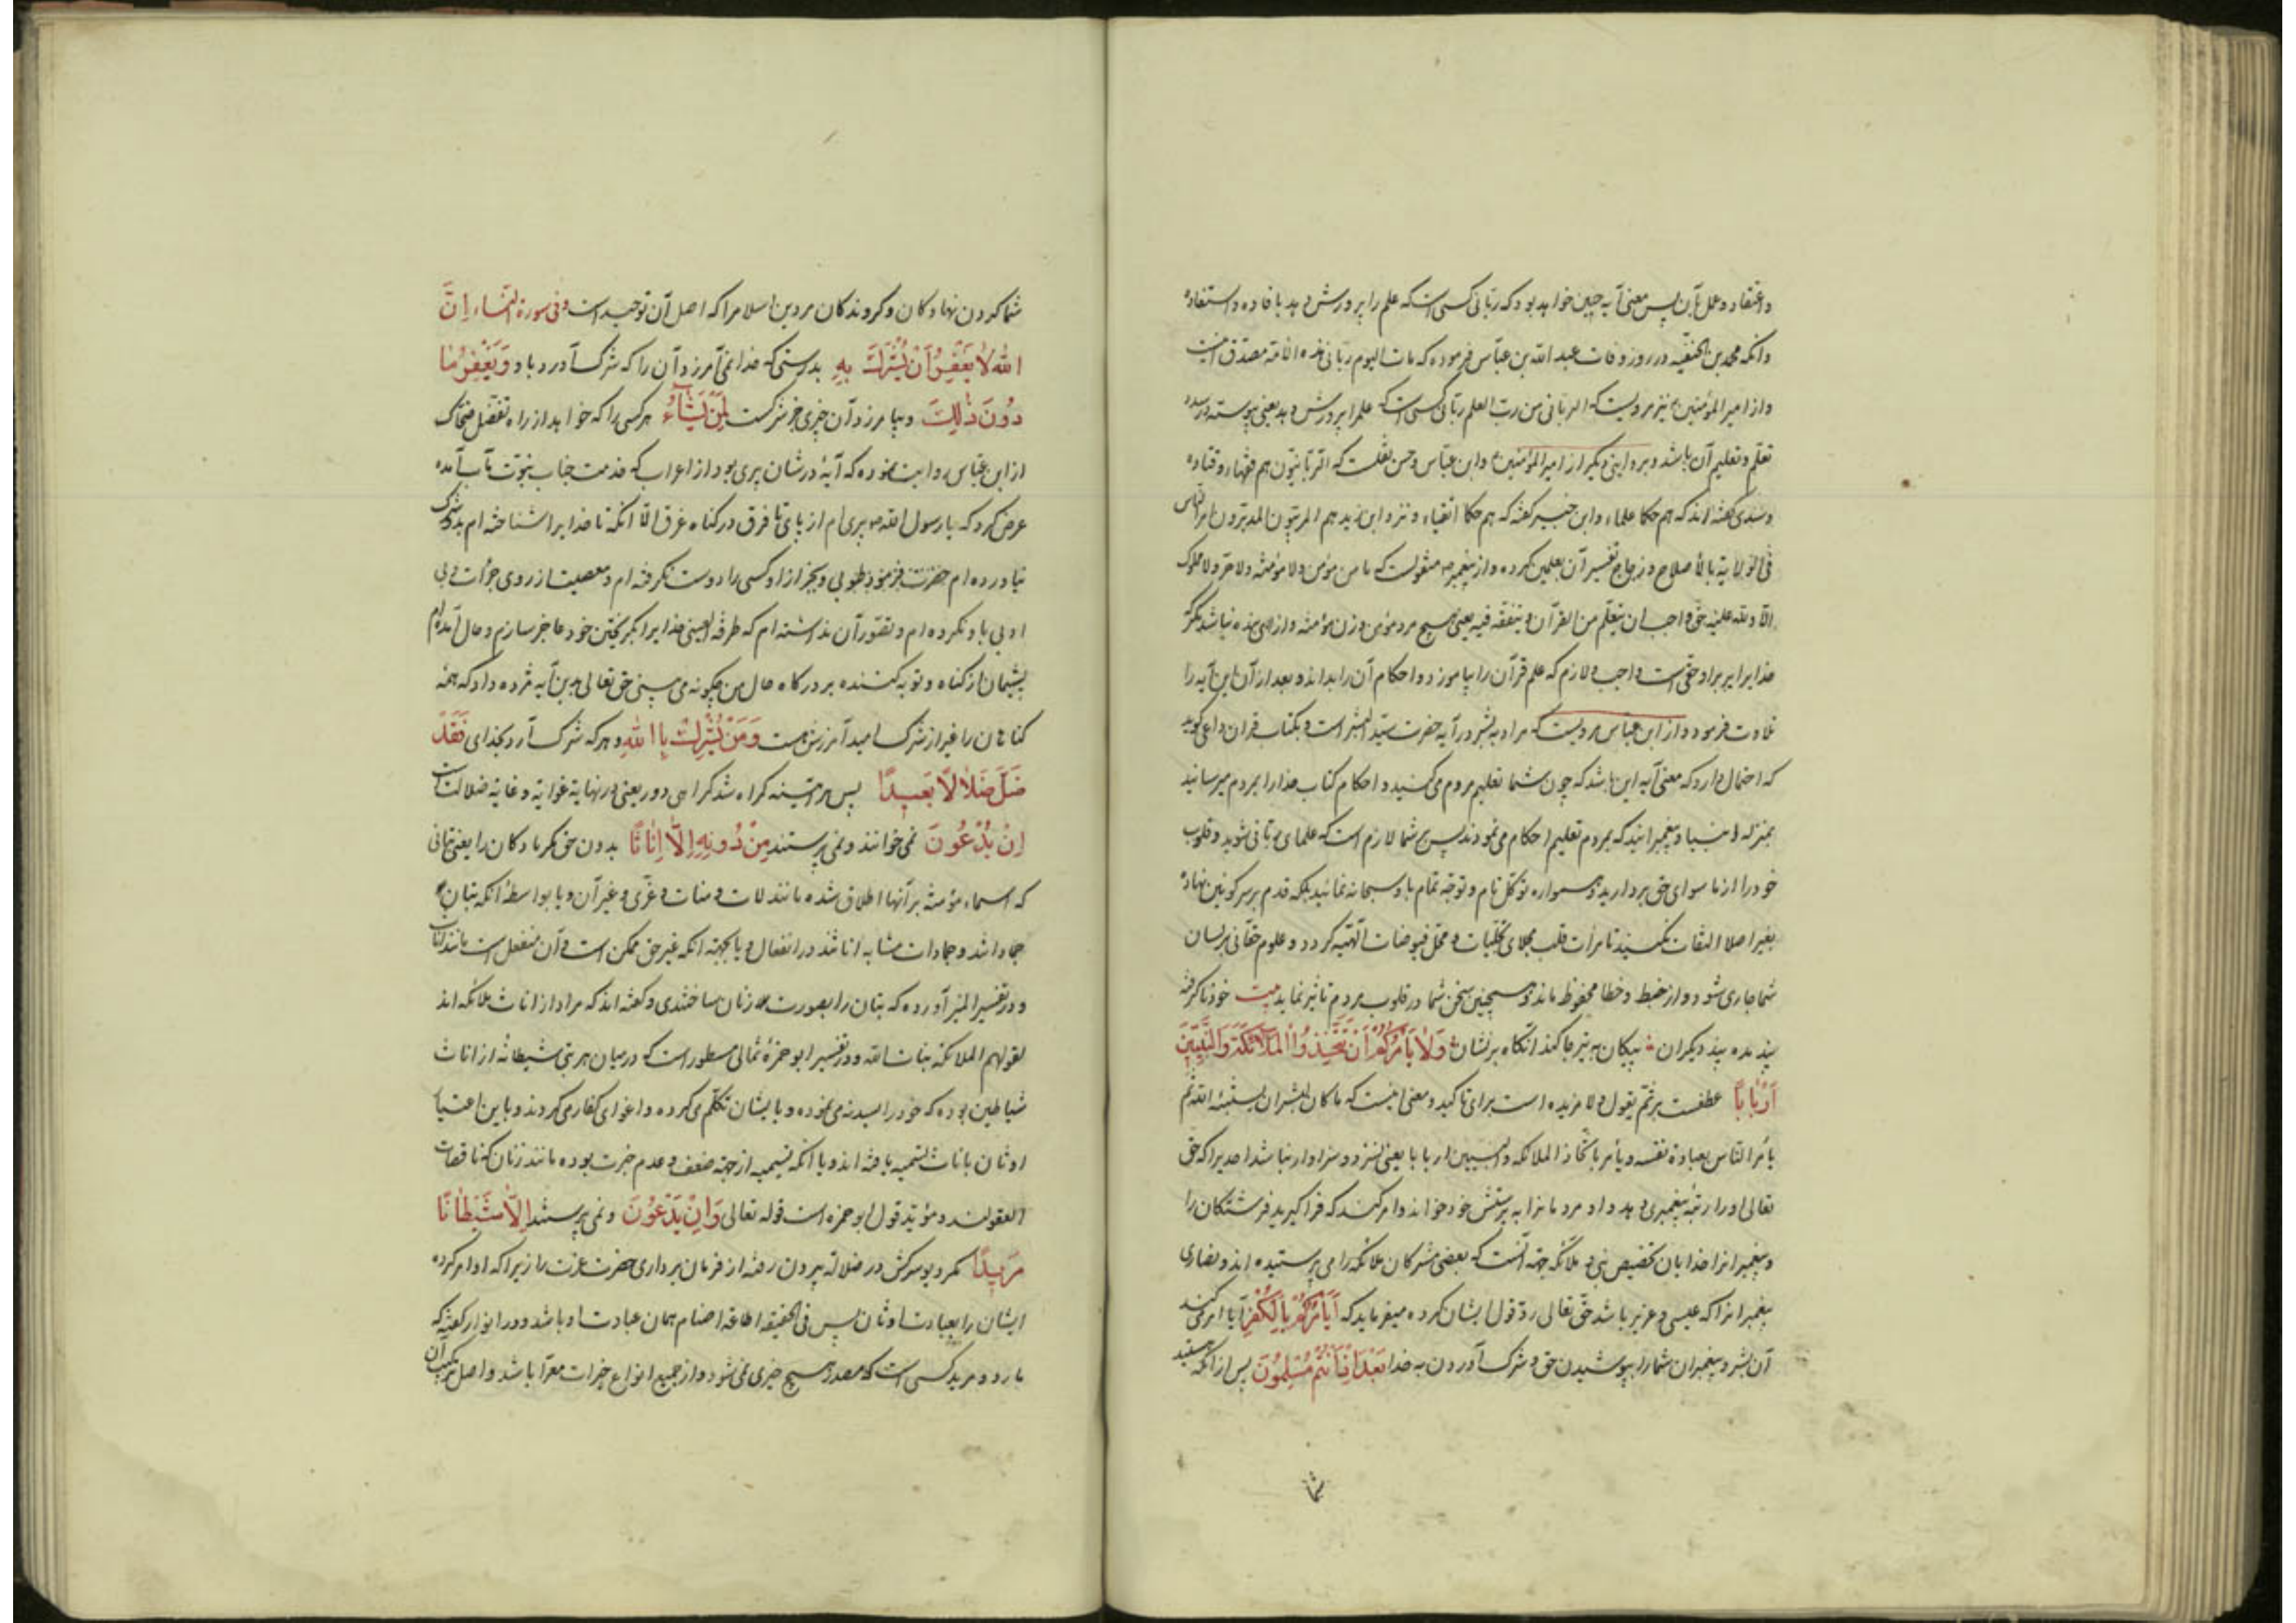 واعتقاد وعمل بآن پس معنی آیه چنین خواهد بود که ربّانی کسی است که علم را پرورش دهد بافاده و استفاده
وانکه محمد بن الحنفیه در روز وفات عبد الله بن عبّاس فرموده که مات الیوم ربّانی هذه الامّة مصدّق اینست
واز امیر المؤمنین نیز مرویست که الربانی من ربّ العلم ربّانی کسی است که علم را پرورش دهد یعنی پیوسته در صدد
تعلّم وتعلیم آن باشد وبروایتی دیگر از امیر المؤمنین وابن عبّاس وحسن نقلست که الرّبّانیّون هم فقهاء وقتاده
وسدی گفته اند که هم حکما علماء وابن جبیر گفته که هم حکما اتقیاء ونزد ابن زید هم المربّون المدبّرون امر الناس
فی الولایة بالأصلاح وزجاج تفسیر آن بمعلمین کرده واز پیغمبر منقولست که ما من مؤمن ولا مؤمنة ولا حرّ ولا مملوک
الّا ولله علیه حق واجب ان یتعلّم من القرآن ویتفقّه فیه یعنی هیچ مرد مؤمن وزن مؤمنه وازاد وبنده نباشد مگر که
خدایرا بر او حقّی است واجب ولازم که علم قرآن را بیاموزد واحکام آن را بداند وبعد از آن این آیه را
تلاوت فرمود واز ابن عبّاس مرویست که مراد ببشر در آیه حضرت سیّد البشر است وبکتاب قران و
که احتمال دارد که معنی آیه این باشد که چون شما تعلیم مردم میکنید واحکام کتاب خدا را بمردم میرسانید
بمنزله انبیا وپیغمبرانید که بمردم تعلیم احکام می نمودند پس بر شما لازم است که علمای ربّانی شوید وقلوب
خود را از ما سوای حق بردارید وهمواره توکّل تام وتوجّه تمام باو سبحانه نمائید بلکه قدم بر سر کونین نهاده
بغیر اصلا التفات نکنید تا مرآت قلب مجلای تجلّیات ومحلّ فیوضات الهیّه گردد وعلوم حقّانی بر لسان
شما جاری شود واز خبط وخطا محفوظ ماند وهمچنین سخن شما در قلوب مردم تاثیر نماید بیت خود ناگرفته
پند مده پند دیگران پیکان به تیر جا کند انگاه بر نشان وَلَا يَأْمُرَكُمْ أَنْ تَتَّخِذُوا الْمَلَائِكَةَ وَالنَّبِيِّينَ
أَرْبَابًا عطفست بر ثمّ یقول ولا مزیده است برای تاکید ومعنی اینست که ما کان لبشر ان یستنبئه الله ثم
یأمر النّاس بعبادة نفسه ویأمر باتّخاذ الملائکه والنبیین اربابا یعنی نسزد وسزاوار نباشد احدیرا که حق
تعالی او را رتبهٔ پیغمبری دهد و او مردمانرا به پرستش خود خواند وامر کند که فرا گیرید فرشتگان را
وپیغمبرانرا خدایان تخصیص نبی وملائکه جهة آنست که بعضی مشرکان ملائکه را می پرستیده اند ونصاری
پیغمبرانرا که عیسی وعزیر باشد حق تعالی ردّ قول ایشان کرده میفرماید که أَيَأْمُرُكُمْ بِالْكُفْرِ آیا امر می کند
آن بشر وپیغمبران شما را بپوشیدن حق وشرک آوردن به خدا بَعْدَ إِذْ أَنْتُمْ مُسْلِمُونَ پس از آنکه هستید
شما
شما گردن نهادگان وگروندگان مر دین اسلام را که اصل آن توحید است وفی سورة النساء إِنَّ
اللَّهَ لَا يَغْفِرُ أَنْ يُشْرَكَ بِهِ بدرستی که خدا نمی آمرزد آن را که شرک آورد باو وَيَغْفِرُ مَا
دُونَ ذَٰلِكَ وبیامرزد آن چیزی جز شرکست لِمَنْ يَشَاءُ هر کسی را که خواهد از راه تفضّل ضحّاک
از ابن عبّاس روایت نموده که آیه در شان پیری بود از اعراب که خدمت جناب نبوّت مآب آمده
عرض کرد که یا رسول الله پیری ام از پای تا فرق در گناه غرق الّا انکه تا خدایرا شناخته ام بدو شرک
نیاورده ام حضرت فرمود طوبی وبجز از او کسی را دوست نگرفته ام ومعصیت از روی جرأت وبی
ادبی باو نکرده ام وتصوّر آن نداشته ام که طرفة العینی خدایرا بگریختن خود عاجز سازم وحال آمده ام
پشیمان از گناه وتوبه کننده بر درگاه حال من چگونه می بینی حق تعالی بدین آیه مژده داد که همه
گناهان را غیر از شرک امید آمرزش هست وَمَنْ يُشْرِكْ بِاللَّهِ وهر که شرک آرد بخدای فَقَدْ
ضَلَّ ضَلَالًا بَعِيدًا پس هر آینه گمراه شد گمراهی دور یعنی در نهایة غوایة وغایة ضلالت است
إِنْ يَدْعُونَ نمی خوانند ونمی پرستند مِنْ دُونِهِ إِلَّا إِنَاثًا بدون حق مگر مادگان را یعنی بتانی
که اسماء مؤنث بر آنها اطلاق شده مانند لات ومنات وعزّی وغیر آن ویا بواسطهٔ انکه بتان
جماد اند وجمادات مشابه اناثند در انفعال ویا بجهة انکه غیر حق ممکن است وآن منفعل است مانند اناث
ودر تفسیر المیزآورده که بتان را بصورت زنان ساختندی وگفته اند که مراد از اناث ملائکه اند
لقولهم الملائکة بنات الله ودر تفسیر ابو حمزهٔ ثمالی مسطور است که در میان هر بتی شیطانهٔ از اناث
شیاطین بوده که خود را بسدنه می نموده وبا ایشان تکلّم می کرده واغوای کفار می کردند وباین اعتبار
اوثان باناث تسمیه یافته اند ویا آنکه تسمیه از جهة ضعف وعدم خبرت بوده مانند زنان که ناقصات
العقولند ومؤیّد قول ابو حمزه است قوله تعالی وَإِنْ يَدْعُونَ ونمی پرستند إِلَّا شَيْطَانًا
مَرِيدًا مگر دیو سرکش در ضلالة بیرون رفته از فرمان برداری حضرت عزت را زیرا که او امر کرده
ایشان را بعبادت اوثان پس فی الحقیقه اطاعة اصنام همان عبادت او باشد ودر انوار گفته که
مارد ومرید کسی است که مصدر هیچ خیری نمی شود واز جمیع انواع خیرات معرّا باشد واصل ترکیب آن